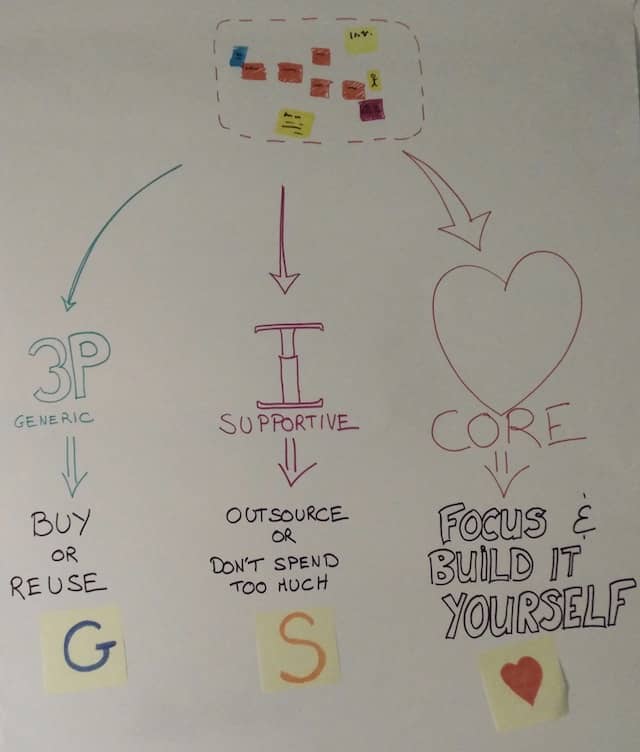 3P
GENERIC
BUY
OR
REUSE
G
SUPPORTIVE
OUTSOURCE
OR
DON'T SPEND
TOO MUCH
S
CORE
FOCUS &
BUILD IT
YOURSELF